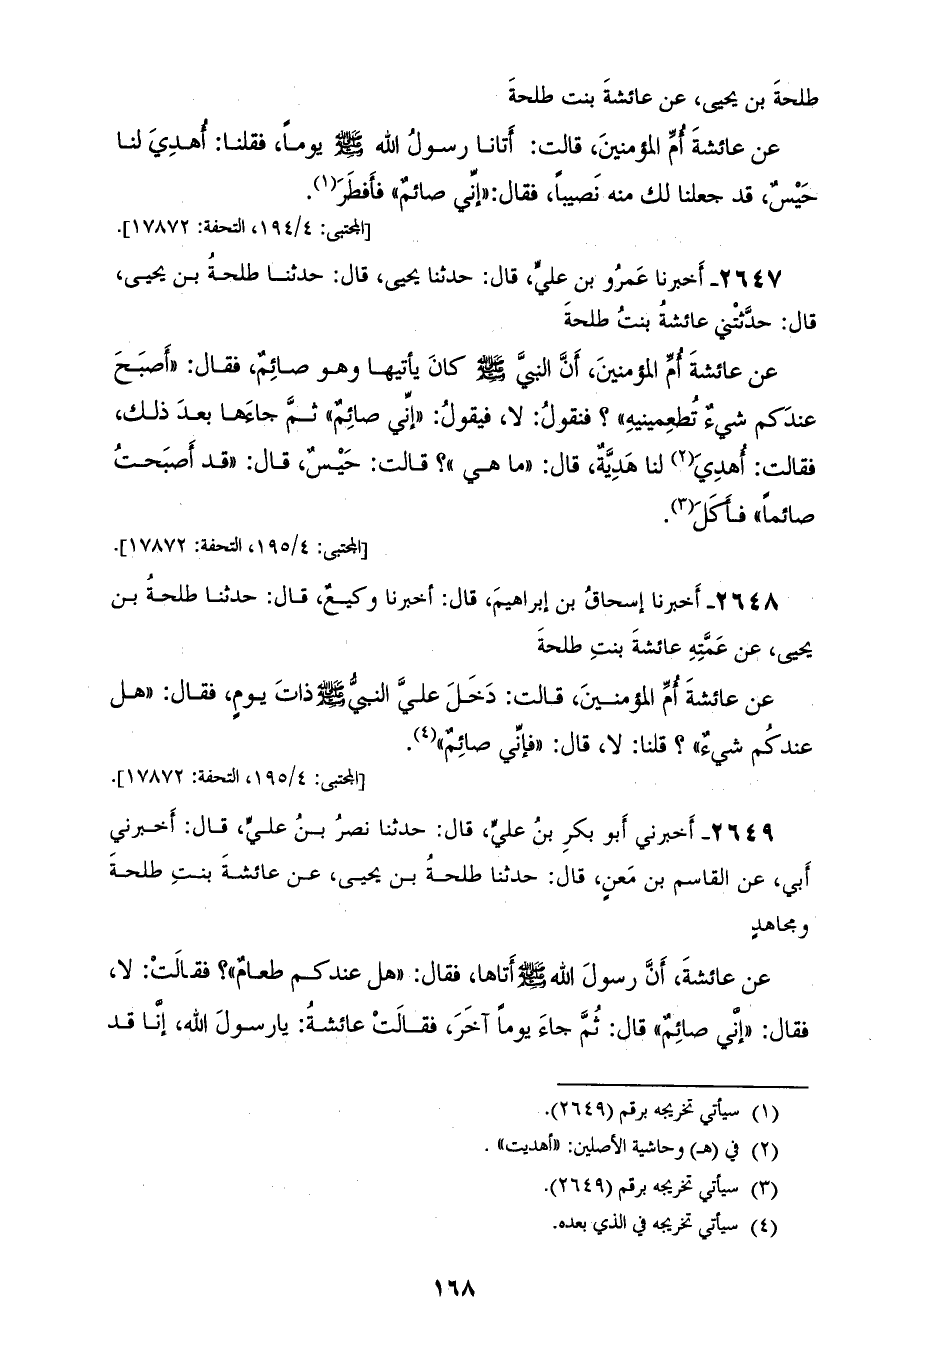 طلحةَ بن يحيى، عن عائشةَ بنت طلحةَ
عن عائشةَ أُمِّ المؤمنينَ، قالت: أَتانا رسولُ الله ﷺ يوماً، فقلنا: أُهدِيَ لنا
حَيْسٌ، قد جعلنا لك منه نَصيباً، فقال: «إنِّي صائمٌ» فأَفطَرَ(١).
[المجتبى: ١٩٤/٤، التحفة: ١٧٨٧٢].
٢٦٤٧ـ أَخبرنا عَمرُو بن عليٍّ، قال: حدثنا يحيى، قال: حدثنا طلحةُ بن يحيى،
قال: حدَّثَتْني عائشةُ بنتُ طلحةَ
عن عائشةَ أُمِّ المؤمنين، أَنَّ النبيَّ ﷺ كانَ يأتيها وهو صائِمٌ، فقال: «أَصبَحَ
عندَكم شيءٌ تُطعِمينيهِ» ؟ فنقولُ: لا، فيقولُ: «إنِّي صائِمٌ» ثمَّ جاءَها بعدَ ذلك،
فقالت: أُهدِيَ(٢) لنا هَدِيَّةٌ، قال: «ما هي »؟ قالت: حَيْسٌ، قال: «قد أَصبَحتُ
صائماً» فأَكَلَ(٣).
[المجتبى: ١٩٥/٤، التحفة: ١٧٨٧٢].
٢٦٤٨ـ أَخبرنا إسحاقُ بن إبراهيمَ، قال: أخبرنا وكيعٌ، قال: حدثنا طلحةُ بن
يحيى، عن عَمَّتِهِ عائشةَ بنتِ طلحةَ
عن عائشةَ أُمِّ المؤمنينَ، قالت: دَخَلَ عليَّ النبيُّ ﷺ ذاتَ يومٍ، فقال: «هل
عندكُم شيءٌ» ؟ قلنا: لا، قال: «فإنِّي صائِمٌ»(٤).
[المجتبى: ١٩٥/٤، التحفة: ١٧٨٧٢].
٢٦٤٩ـ أَخبرني أَبو بكرِ بنُ عليٍّ، قال: حدثنا نصرُ بنُ عليٍّ، قال: أَخبرني
أَبي، عن القاسم بن مَعنٍ، قال: حدثنا طلحةُ بن يحيى، عن عائشةَ بنتِ طلحةَ
ومجاهدٍ
عن عائشةَ، أَنَّ رسولَ الله ﷺ أَتاها، فقال: «هل عندكم طعامٌ»؟ فقالَتْ: لا،
فقال: «إنَّي صائِمٌ» قال: ثُمَّ جاءَ يوماً آخَرَ، فقالَتْ عائشةُ: يارسولَ الله، إنَّا قد
(١) سيأتي تخريجه برقم (٢٦٤٩).
(٢) في (هـ) وحاشية الأصلين: «أهديت» .
(٣) سيأتي تخريجه برقم (٢٦٤٩).
(٤) سيأتي تخريجه في الذي بعده.
١٦٨